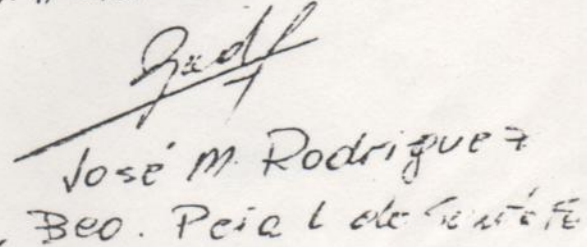 José M. Rodriguez
Bco. Pcial de Santa Fe